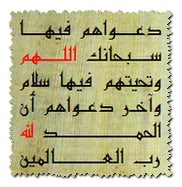 دعواهم فيها
سبحانك اللهم
وتحيتهم فيها سلام
وآخر دعواهم أن
الحمد لله
رب العالمين